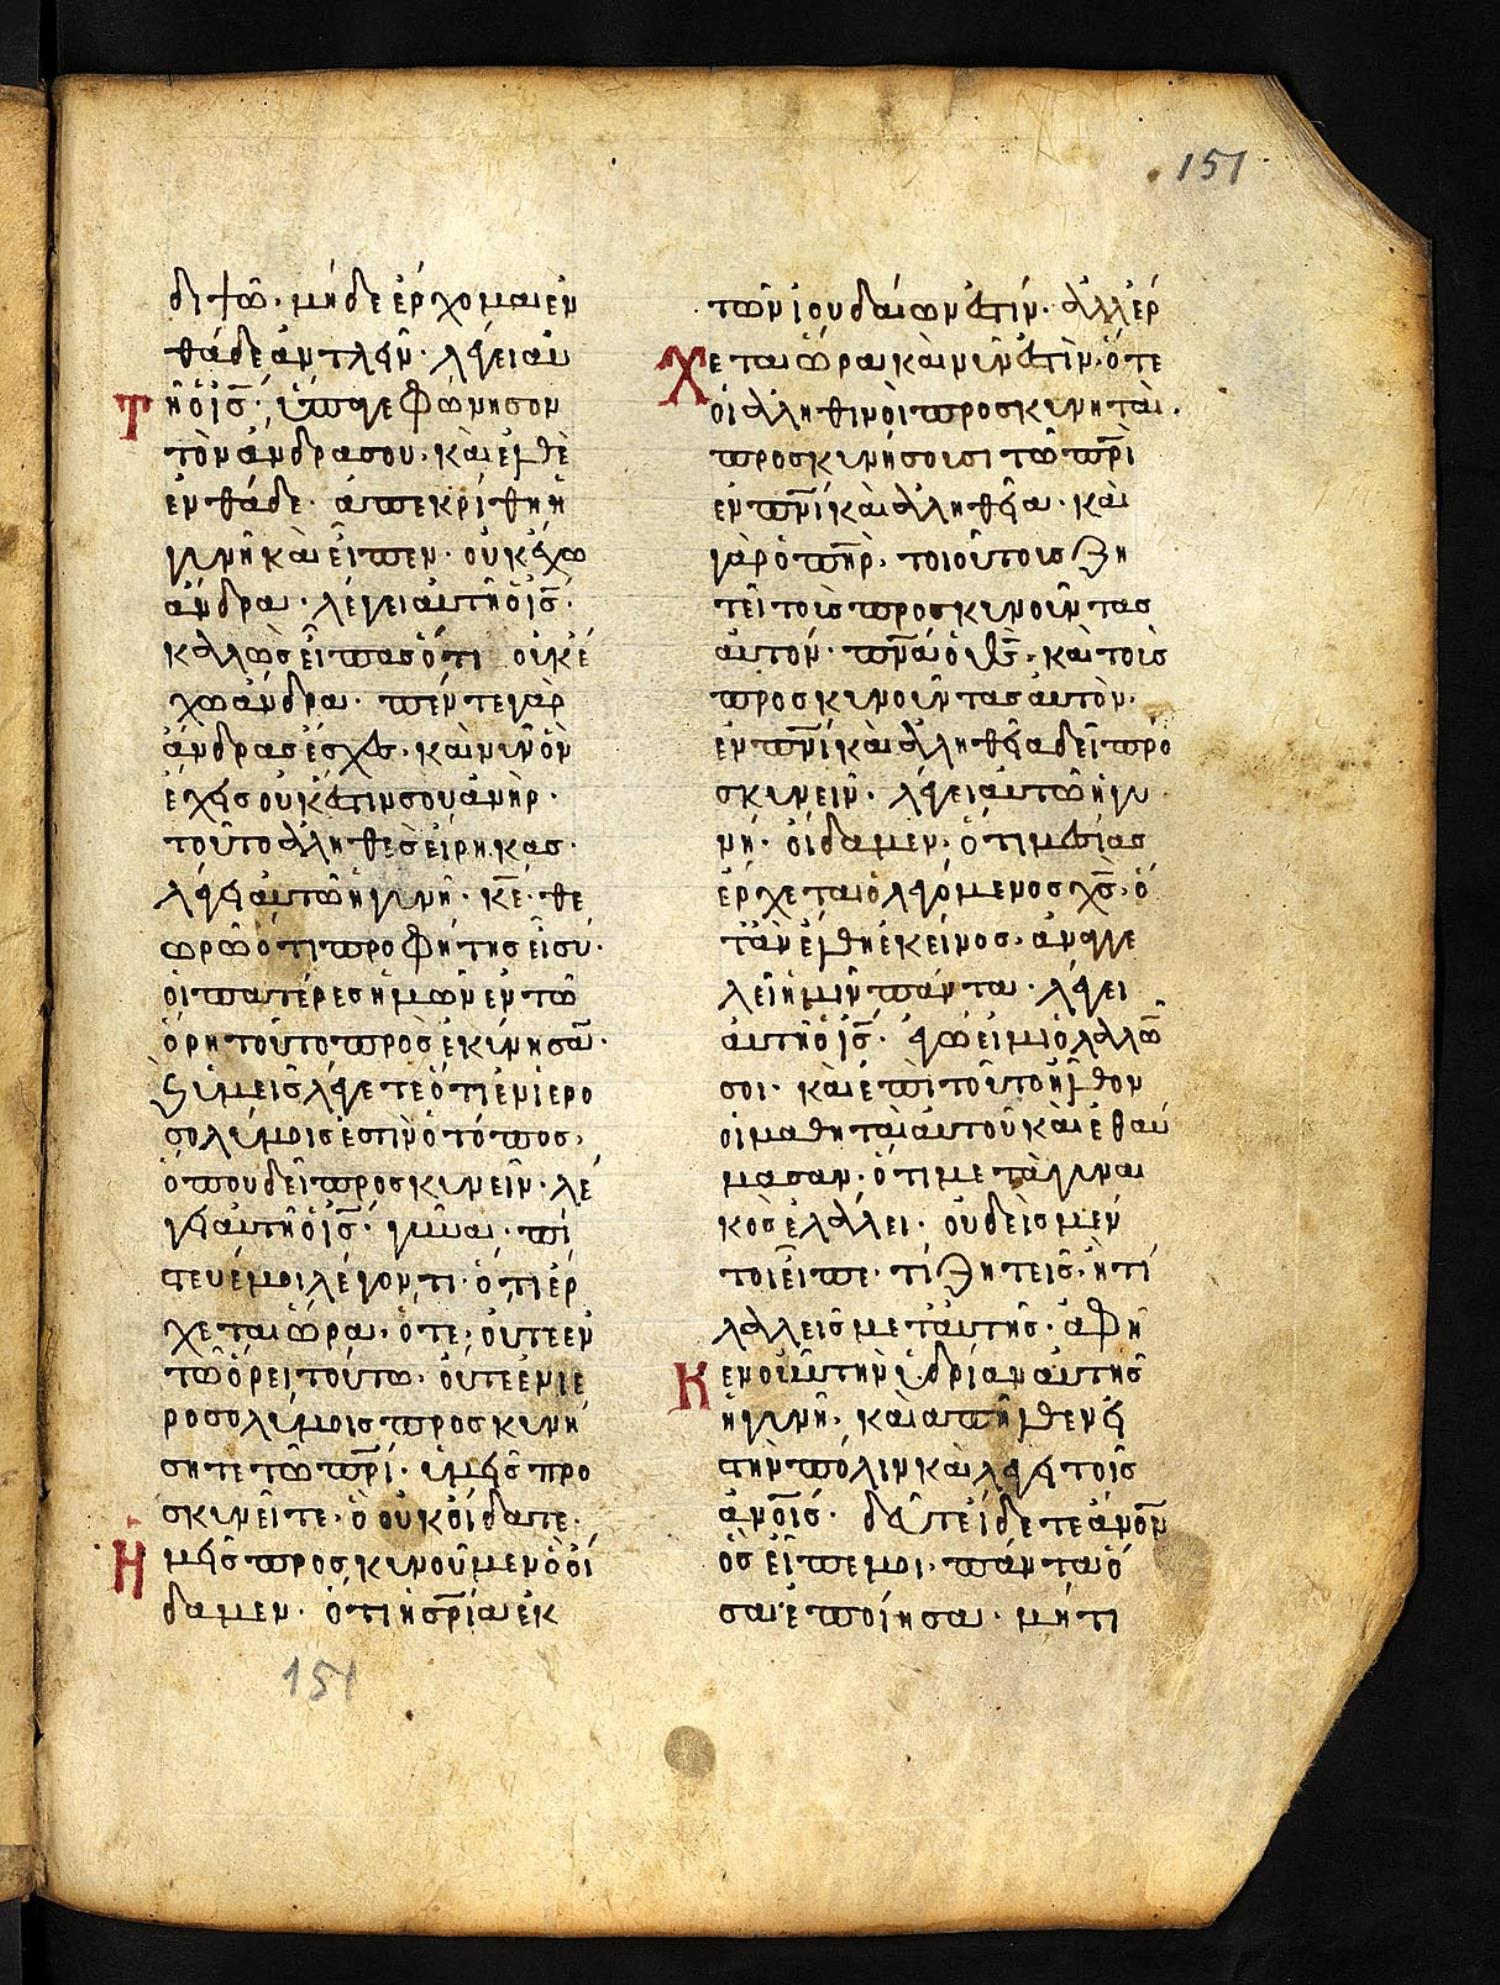 151
διψῶ· μὴ δὲ ἔρχομαι ἐν
θάδε ἀντλεῖν· λέγει αυ
Τῆ ὁ ις̅· ὕπαγε φώνησον
τὸν ἄνδρα σου· καὶ ἐλθὲ
ἐνθάδε· ἀπεκρίθη ἡ
γυνὴ καὶ εἶπεν· οὐκ ἔχω
ἄνδρα· λέγει αὐτῆ ὁ ις̅·
καλῶς εἶπας ὅτι οὐκ ἔ
χω ἄνδρα· πέντε γὰρ
ἄνδρας ἔσχες· καὶ νῦν ὃν
ἔχεις οὐκ ἔστιν σου ἀνήρ·
τοῦτο ἀληθὲς εἴρηκας·
λέγει αὐτῶ ἡ γυνή· κε̅· θε
ωρῶ ὅτι προφήτης εἶ σύ·
οἱ πατέρες ἡμῶν ἐν τῶ
ὄρη τούτο προσεκύνησαν·
ϗ ὑμεῖς λέγετε ὅτι ἐν ἱερο
σολύμοις ἐστὶν ὁ τόπος,
ὅπου δεῖ προσκυνεῖν· λέ
γει αὐτῆ ὁ ις̅· γύναι· πί
στευέ μοι λέγοντι· ὅτι ἔρ
χεται ὥρα· ὅτε, οὔτε ἐν
τῶ ὄρει τούτω· οὔτε ἐν ιε
ροσολύμοις προσκυνή
σητε τῶ πρι̅· ὑμεῖς προ
σκυνεῖτε· ὃ οὐκ οἴδατε·
Ημεῖς προσκυνοῦμεν ὃ οἴ
δαμεν· ὅτι ἡ σρια̅ ἐκ
τῶν ἰουδαίων ἐστίν· ἀλλ ἔρ
Χεται ὥρα καὶ νῦν ἐστὶν· ὅτε
οἱ ἀληθινοὶ προσκυνηταὶ·
προσκυνήσουσι τῶ πρι̅
ἐν πνι̅ καὶ ἀληθεία· καὶ
γὰρ ὁ πηρ̅· τοιούτους ζη
τεῖ τοὺς προσκυνοῦντας
αὐτόν· πνα̅ ὁ θς̅· καὶ τοὺς
προσκυνοῦντας αὐτὸν·
ἐν πνι̅ καὶ ἀληθεία δεῖ προ
σκυνεῖν· λέγει αὐτῶ ἡ γυ
νή· οἴδαμεν· ὅτι μεσίας
ἔρχεται ὁ λεγόμενος χς̅· ὅ
τὰν ἔλθη ἐκεῖνος· ἀναγγε
λεῖ ἡμῖν πάντα· λέγει
αὐτῆ ὁ ις̅· ἐγώ εἰμι ὁ λαλῶν
σοι· καὶ ἐπὶ τοῦτο ἦλθον
οἱ μαθηταὶ αὐτοῦ καὶ ἐθαύ
μασαν· ὅτι μετὰ γυναι
κὸς ἐλάλει· οὐδεὶς μέν
τοι εἶπε· τί ζητεῖς· ἢ τί
λαλλεῖς μετ αὐτῆς· ἀφῆ
Κεν οὖν τὴν ὑδρίαν αὐτῆς
ἡ γυνή· καὶ ἀπῆλθεν εἰ
ς τὴν πόλιν καὶ λέγει τοῖς
ἀνοις̅· δεῦτε ἴδετε ἀνον̅
ὃς εἶπέ μοι· πάντα ὅ
σα ἐποίησα· μήτι
151